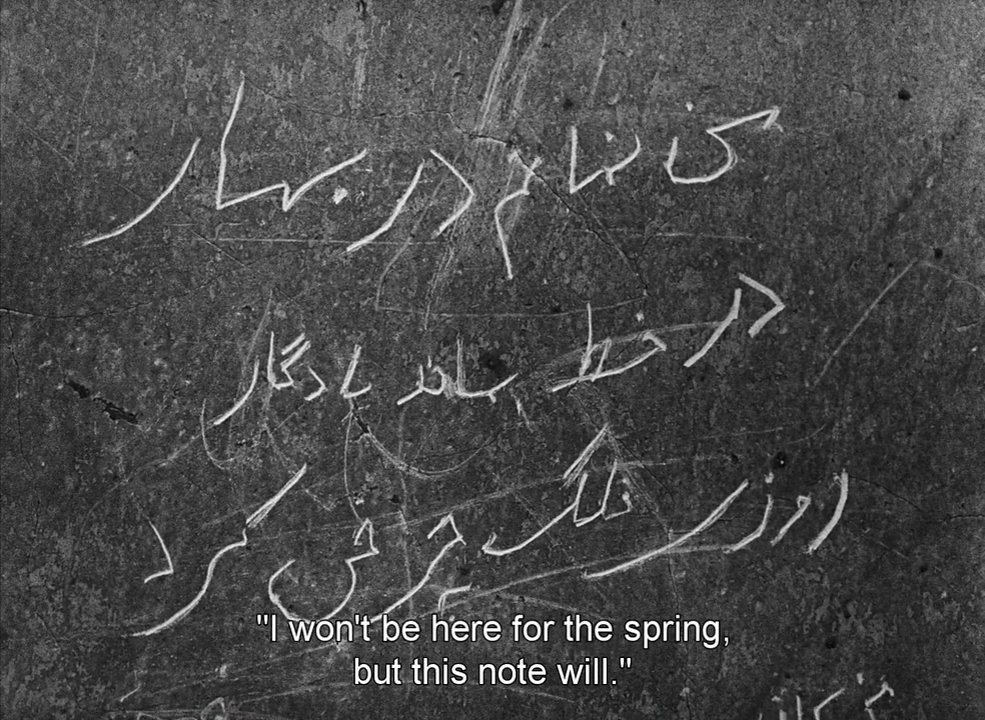 نمانم در بهار
در خط بماند یادگار
روزی فلک چرخش کرد
"I won't be here for the spring,
but this note will."